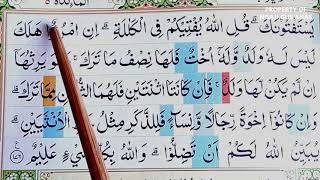 يَسْتَفْتُونَكَ ۗ قُلِ اللّٰهُ يُفْتِيْكُمْ فِى الْكَلٰلَةِ ۗ اِنِ امْرُؤٌا هَلَكَ
لَيْسَ لَهٗ وَلَدٌ وَّلَهٗٓ اُخْتٌ فَلَهَا نِصْفُ مَا تَرَكَ ۚ وَهُوَ يَرِثُهَآ
اِنْ لَّمْ يَكُنْ لَّهَا وَلَدٌ ۗ فَاِنْ كَانَتَا اثْنَتَيْنِ فَلَهُمَا الثُّلُثٰنِ مِمَّا تَرَكَ ۗ
وَاِنْ كَانُوْٓا اِخْوَةً رِّجَالًا وَّنِسَآءً فَلِلذَّكَرِ مِثْلُ حَظِّ الْاُنْثَيَيْنِ ۗ
يُبَيِّنُ اللّٰهُ لَكُمْ اَنْ تَضِلُّوْا ۗ وَاللّٰهُ بِكُلِّ شَيْءٍ عَلِيْمٌ